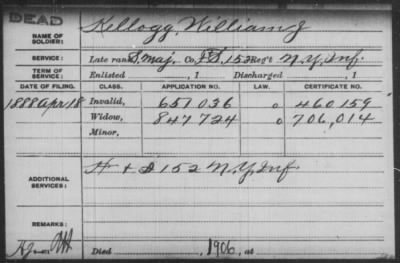 DEAD
NAME OF SOLDIER: Kellogg, William J
SERVICE: Late rank S. Maj, Co. F.S. 152 Reg't N.Y. Inf.
TERM OF SERVICE: Enlisted , 1 Discharged , 1
DATE OF FILING. CLASS. APPLICATION NO. LAW. CERTIFICATE NO.
1888 Apr 18 Invalid, 651 036 0 460 159
Widow, 847 724 0 706,014
Minor,
ADDITIONAL SERVICES: H + D 152 N.Y. Inf
REMARKS:
Died , 1906, at